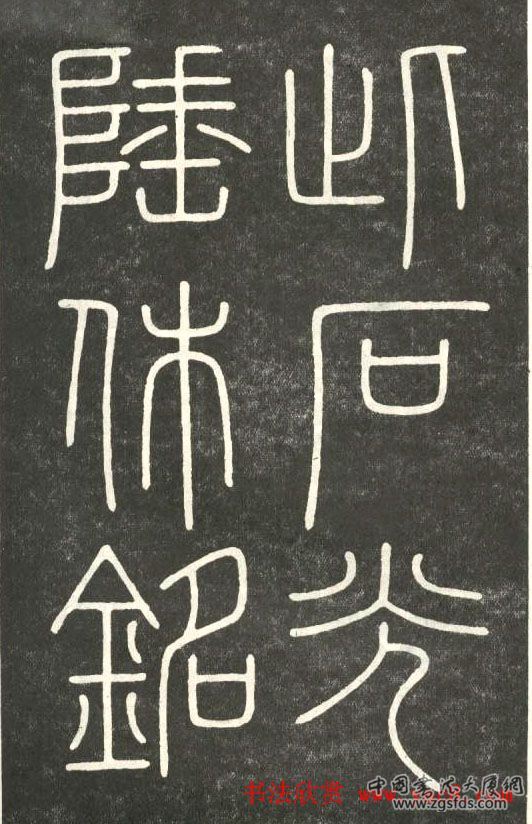 此石光
休銘
书法欣赏
中國书法大展網
www.zgsfds.com